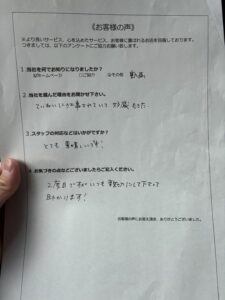 《お客様の声》
※より良いサービス、心を込めたサービス、お客様に喜ばれるお店を目指しております。
つきましては、以下のアンケートにご協力お願い致します。
1.当社を何でお知りになりましたか?
☑ホームページ □ご紹介 ☑その他 動画
2.当社を選んだ理由をお聞かせ下さい。
ていねいに
3.スタッフの対応などはいかがですか?
とても 素晴しいです!
4.お気づきの点などございましたらご記入ください。
2度目ですが いつも 親切にして下さって
助かります!
お客様の声にお答え頂き、ありがとうございました。